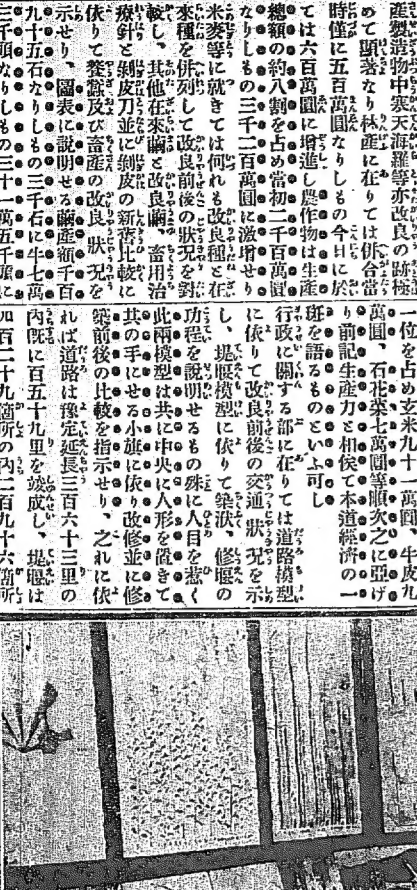 產製造物中寒天海羅等亦改良の跡極
めて顯著なり林產に在りては併合當
時僅に五百萬圓なりしもの今日に於
ては六百萬圓に增進し農作物は生產
總額の約八割を占め當初二千百萬圓
なりしもの三千二百萬圓に激增せり
米麥等に就きては何れも改良種と在
來種を併列して改良前後の狀況を對
較し、其他在來繭と改良繭、畜用治
療針と剝皮刀並に剝皮の新舊比較に
依りて養蠶及び畜產の改良狀況を
示せり、圖表に說明せる繭產額千百
九十五石なりしもの三千石に牛七萬
三千頭なりしもの三十一萬五千頭に
一位を占め玄米九十一萬圓、牛皮九
萬圓、石花菜七萬圓等順次之に亞げ
り前記生產力と相俟て本道經濟の一
斑を語るものといふ可し
行政に關する部に在りては道路模型
に依りて改良前後の交通狀況を示
し、堤堰模型に依りて築洑、修堰の
功程を說明せるもの殊に人目を惹く
此兩模型は共に中央に人形を置きて
其の手にせる小旗に依り改修並に修
築前後の比較を指示せり、之れに依
れば道路は豫定延長三百六十三里の
內旣に百五十九里を竣成し、堤堰は
四百二十九箇所の內二百九十六箇所